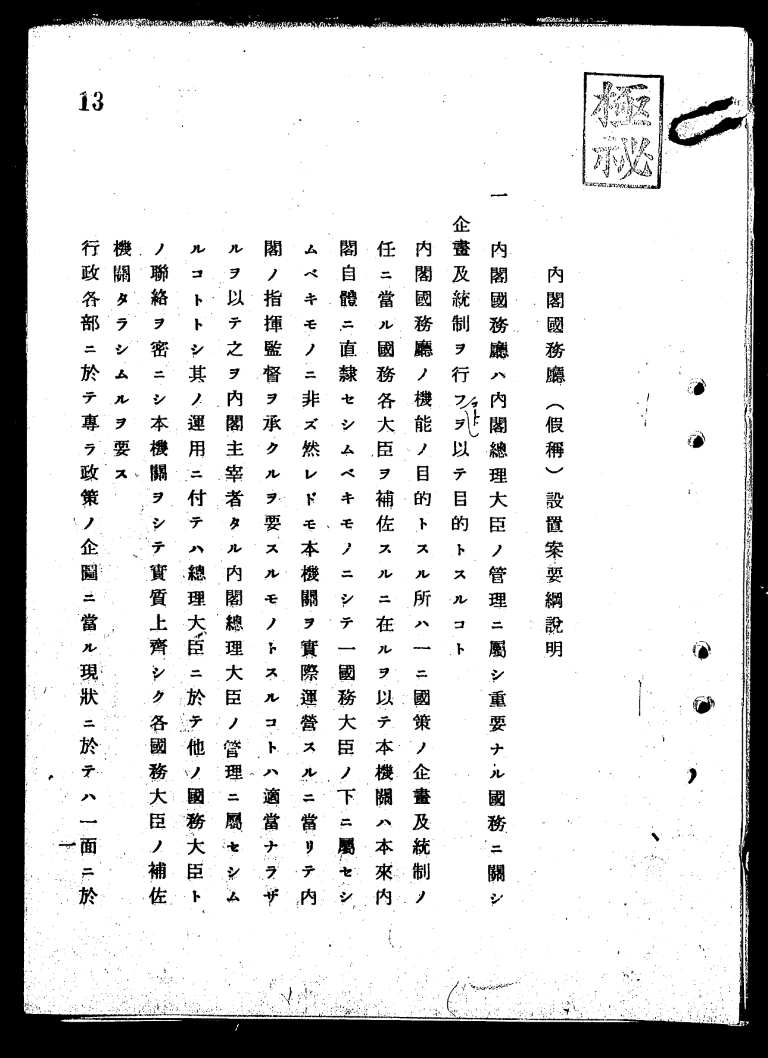 極秘
13
内閣國務廳(假稱)設置案要綱說明
一
内閣國務廳ハ内閣總理大臣ノ管理ニ屬シ重要ナル國務ニ關シ
企畫及統制ヲ行フコトヲ以テ目的トスルコト
内閣國務廳ノ機能ノ目的トスル所ハ一ニ國策ノ企畫及統制ノ
任ニ當ル國務各大臣ヲ補佐スルニ在ルヲ以テ本機關ハ本來内
閣自體ニ直隸セシムベキモノニシテ一國務大臣ノ下ニ屬セシ
ムベキモノニ非ズ然レドモ本機關ヲ實際運營スルニ當リテ内
閣ノ指揮監督ヲ承クルヲ要スルモノトスルコトハ適當ナラザ
ルヲ以テ之ヲ内閣主宰者タル内閣總理大臣ノ管理ニ屬セシム
ルコトトシ其ノ運用ニ付テハ總理大臣ニ於テ他ノ國務大臣ト
ノ聯絡ヲ密ニシ本機關ヲシテ實質上齊シク各國務大臣ノ補佐
機關タラシムルヲ要ス
行政各部ニ於テ專ラ政策ノ企圖ニ當ル現狀ニ於テハ一面ニ於
一